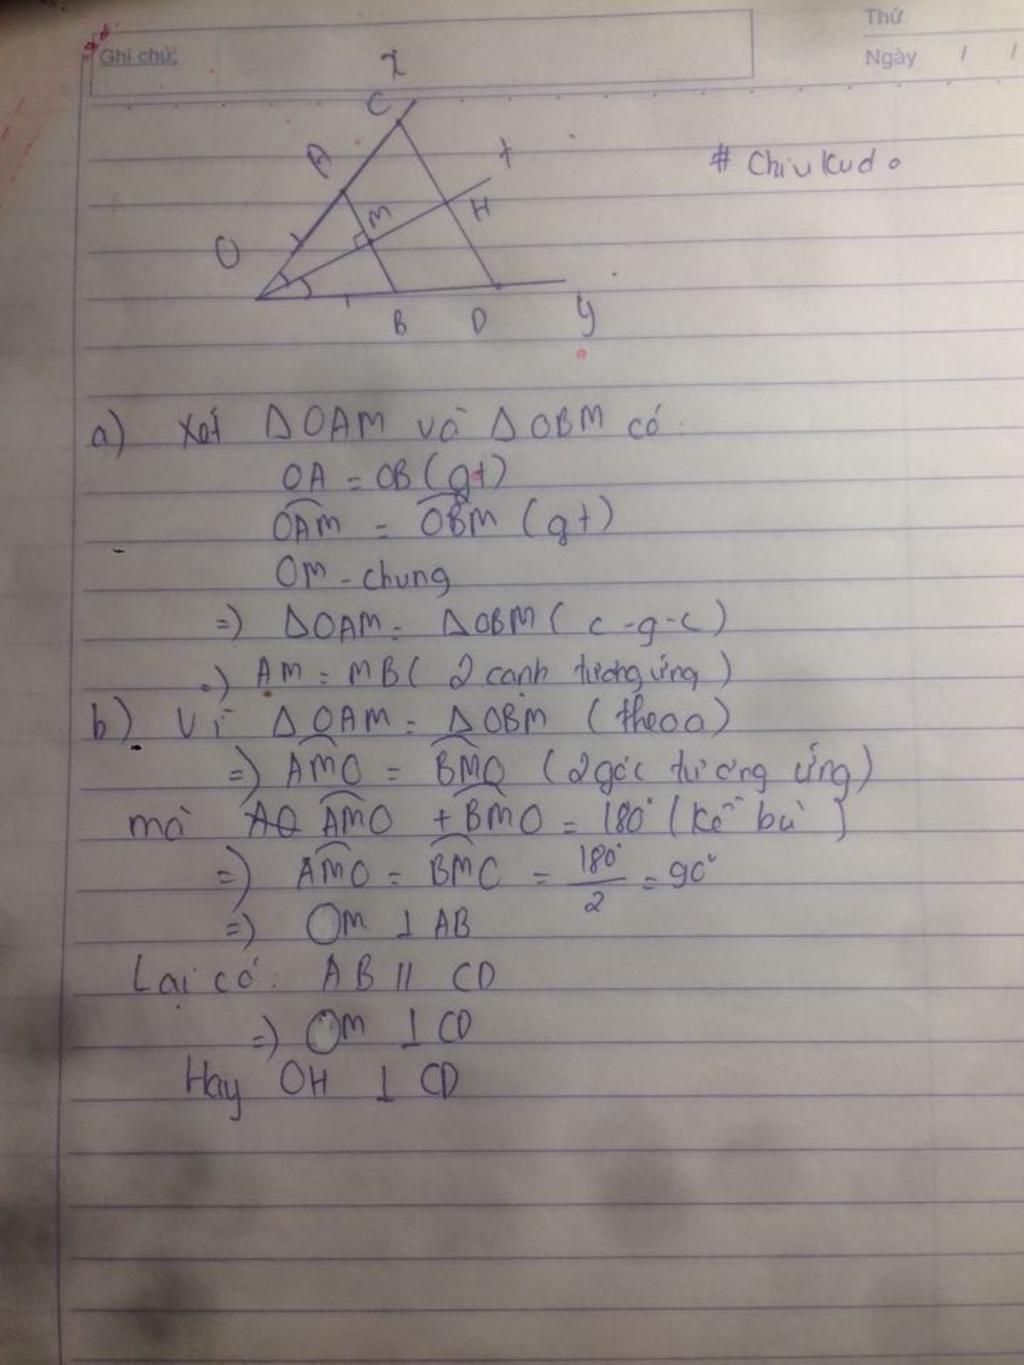 Thứ
Ghi chú:
Ngày / /
x
C
A
t
# Chiyukudo
M
H
O
B D y
a) Xét ΔOAM và ΔOBM có:
OA = OB (gt)
OAM = OBM (gt)
OM - chung
=) ΔOAM = ΔOBM ( c-g-c)
=) AM = MB ( 2 cạnh tương ứng )
b) Vì ΔOAM = ΔOBM (theo a)
=) AMO = BMO (2 góc tương ứng)
mà AMO + BMO = 180° (kề bù)
=) AMO = BMC = 180°/2 = 90°
=) OM ⊥ AB
Lại có: AB // CD
=) OM ⊥ CD
Hay OH ⊥ CD